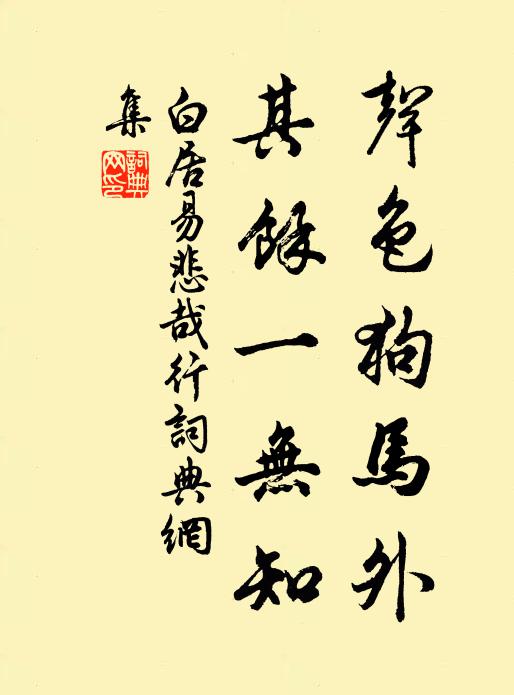 聲色狗馬外
其餘一無知
白居易悲哉行詞典網
集
詞典网印